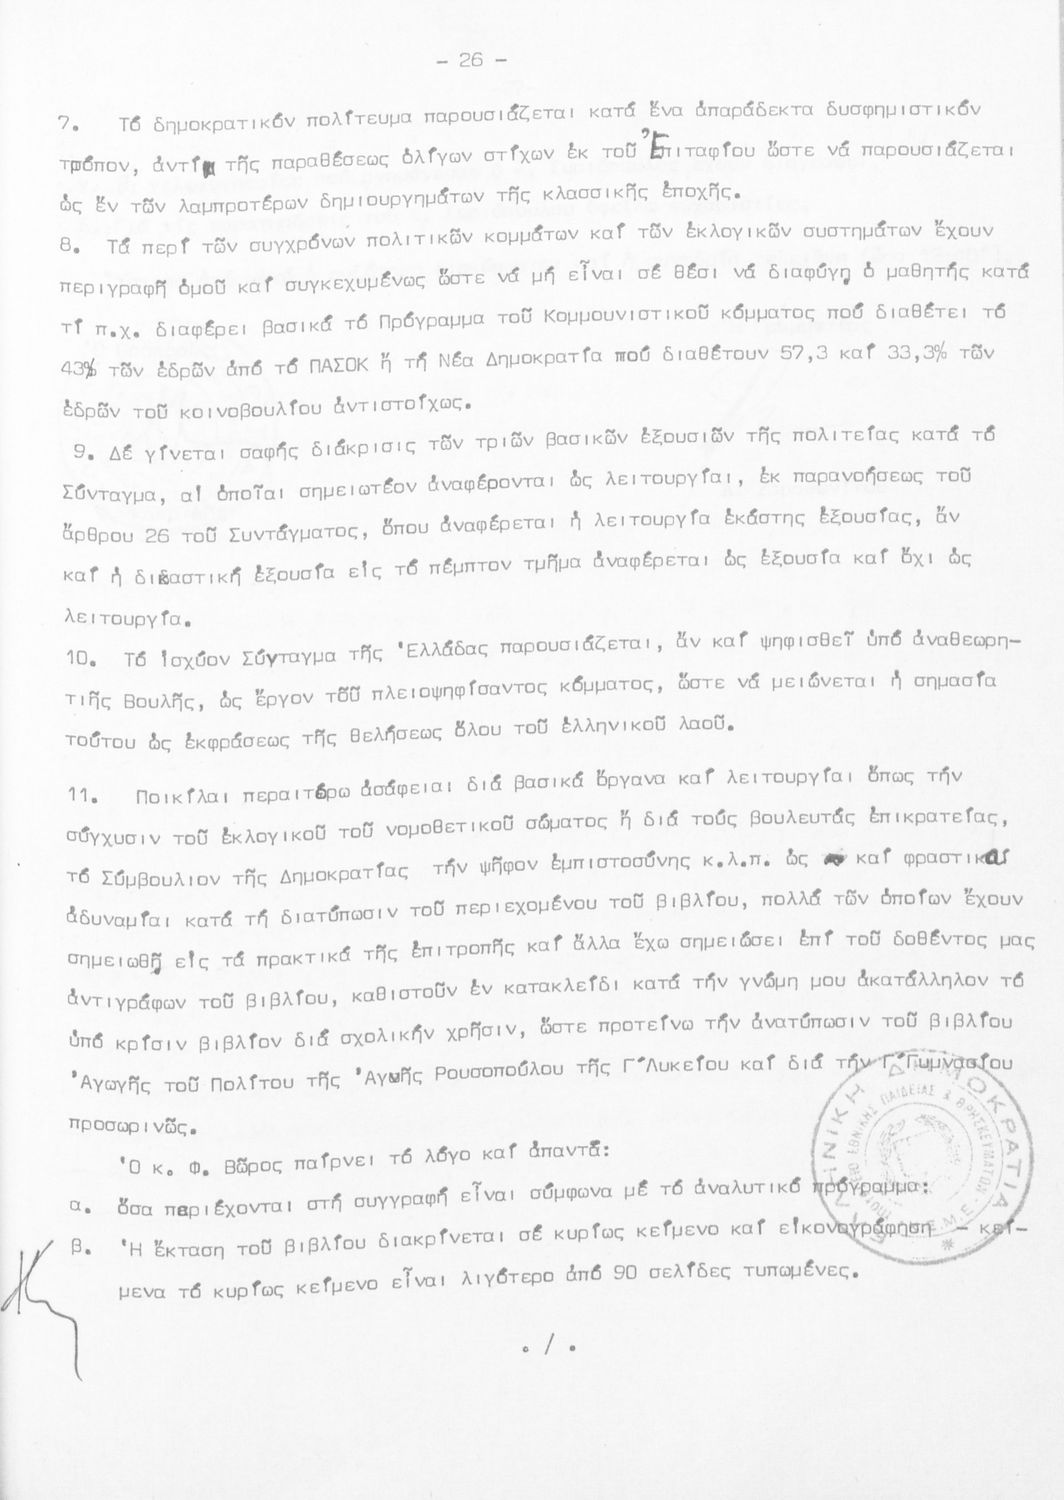 - 26 -
7. Τό δημοκρατικόν πολίτευμα παρουσιάζεται κατά ἕνα ἀπαράδεκτα δυσφημιστικόν
τρόπον, ἀντί τῆς παραθέσεως ὀλίγων στίχων ἐκ τοῦ Ἐπιταφίου ὥστε νά παρουσιάζεται
ὡς ἕν τῶν λαμπροτέρων δημιουργημάτων τῆς κλασσικῆς ἐποχῆς.
8. Τά περί τῶν συγχρόνων πολιτικῶν κομμάτων καί τῶν ἐκλογικῶν συστημάτων ἔχουν
περιγραφῆ ὁμοῦ καί συγκεχυμένως ὥστε νά μή εἶναι σέ θέσι νά διαφύγῃ ὁ μαθητής κατά
τί π.χ. διαφέρει βασικά τό Πρόγραμμα τοῦ Κομμουνιστικοῦ κόμματος πού διαθέτει τό
43% τῶν ἑδρῶν ἀπό τό ΠΑΣΟΚ ἤ τή Νέα Δημοκρατία πού διαθέτουν 57,3 καί 33,3% τῶν
ἑδρῶν τοῦ κοινοβουλίου ἀντιστοίχως.
9. Δέ γίνεται σαφής διάκρισις τῶν τριῶν βασικῶν ἐξουσιῶν τῆς πολιτείας κατά τό
Σύνταγμα, αἱ ὁποῖαι σημειωτέον ἀναφέρονται ὡς λειτουργίαι, ἐκ παρανοήσεως τοῦ
ἄρθρου 26 τοῦ Συντάγματος, ὅπου ἀναφέρεται ἡ λειτουργία ἑκάστης ἐξουσίας, ἄν
καί ἡ δικαστική ἐξουσία εἰς τό πέμπτον τμῆμα ἀναφέρεται ὡς ἐξουσία καί ὄχι ὡς
λειτουργία.
10. Τό ἰσχῦον Σύνταγμα τῆς Ἑλλάδας παρουσιάζεται, ἄν καί ψηφισθεῖ ὑπό ἀναθεωρη-
τιῆς Βουλῆς, ὡς ἔργον τοῦ πλειοψηφίσαντος κόμματος, ὥστε νά μειώνεται ἡ σημασία
τούτου ὡς ἐκφράσεως τῆς θελήσεως ὅλου τοῦ ἑλληνικοῦ λαοῦ.
11. Ποικίλαι περαιτέρω ἀσάφειαι διά βασικά ὄργανα καί λειτουργίαι ὅπως τήν
σύγχυσιν τοῦ ἐκλογικοῦ τοῦ νομοθετικοῦ σώματος ἤ διά τούς βουλευτάς ἐπικρατείας,
τό Σύμβουλιον τῆς Δημοκρατίας τήν ψῆφον ἐμπιστοσύνης κ.λ.π. ὡς καί φραστικαί
ἀδυναμίαι κατά τή διατύπωσιν τοῦ περιεχομένου τοῦ βιβλίου, πολλά τῶν ὁποίων ἔχουν
σημειωθῆ εἰς τά πρακτικά τῆς ἐπιτροπῆς καί ἄλλα ἔχω σημειώσει ἐπί τοῦ δοθέντος μας
ἀντιγράφων τοῦ βιβλίου, καθιστοῦν ἐν κατακλεῖδι κατά τήν γνώμη μου ἀκατάλληλον τό
ὑπό κρίσιν βιβλίον διά σχολικήν χρῆσιν, ὥστε προτείνω τήν ἀνατύπωσιν τοῦ βιβλίου
Ἀγωγῆς τοῦ Πολίτου τῆς Ἀγωῆς Ρουσοπούλου τῆς Γ΄Λυκείου καί διά τήν Γ΄Γυμνασίου
προσωρινῶς.
Ὁ κ. Φ. Βῶρος παίρνει τό λόγο καί ἀπαντᾶ:
α. ὅσα περιέχονται στή συγγραφή εἶναι σύμφωνα μέ τό ἀναλυτικό πρόγραμμα:
β. Ἡ ἔκταση τοῦ βιβλίου διακρίνεται σέ κυρίως κείμενο καί εἰκονογράφηση - κεί-
μενα τό κυρίως κείμενο εἶναι λιγότερο ἀπό 90 σελίδες τυπωμένες.
. / .
ΕΛΛΗΝΙΚΗ ΔΗΜΟΚΡΑΤΙΑ
ΕΘΝΙΚΗΣ ΠΑΙΔΕΙΑΣ & ΘΡΗΣΚΕΥΜΑΤΩΝ